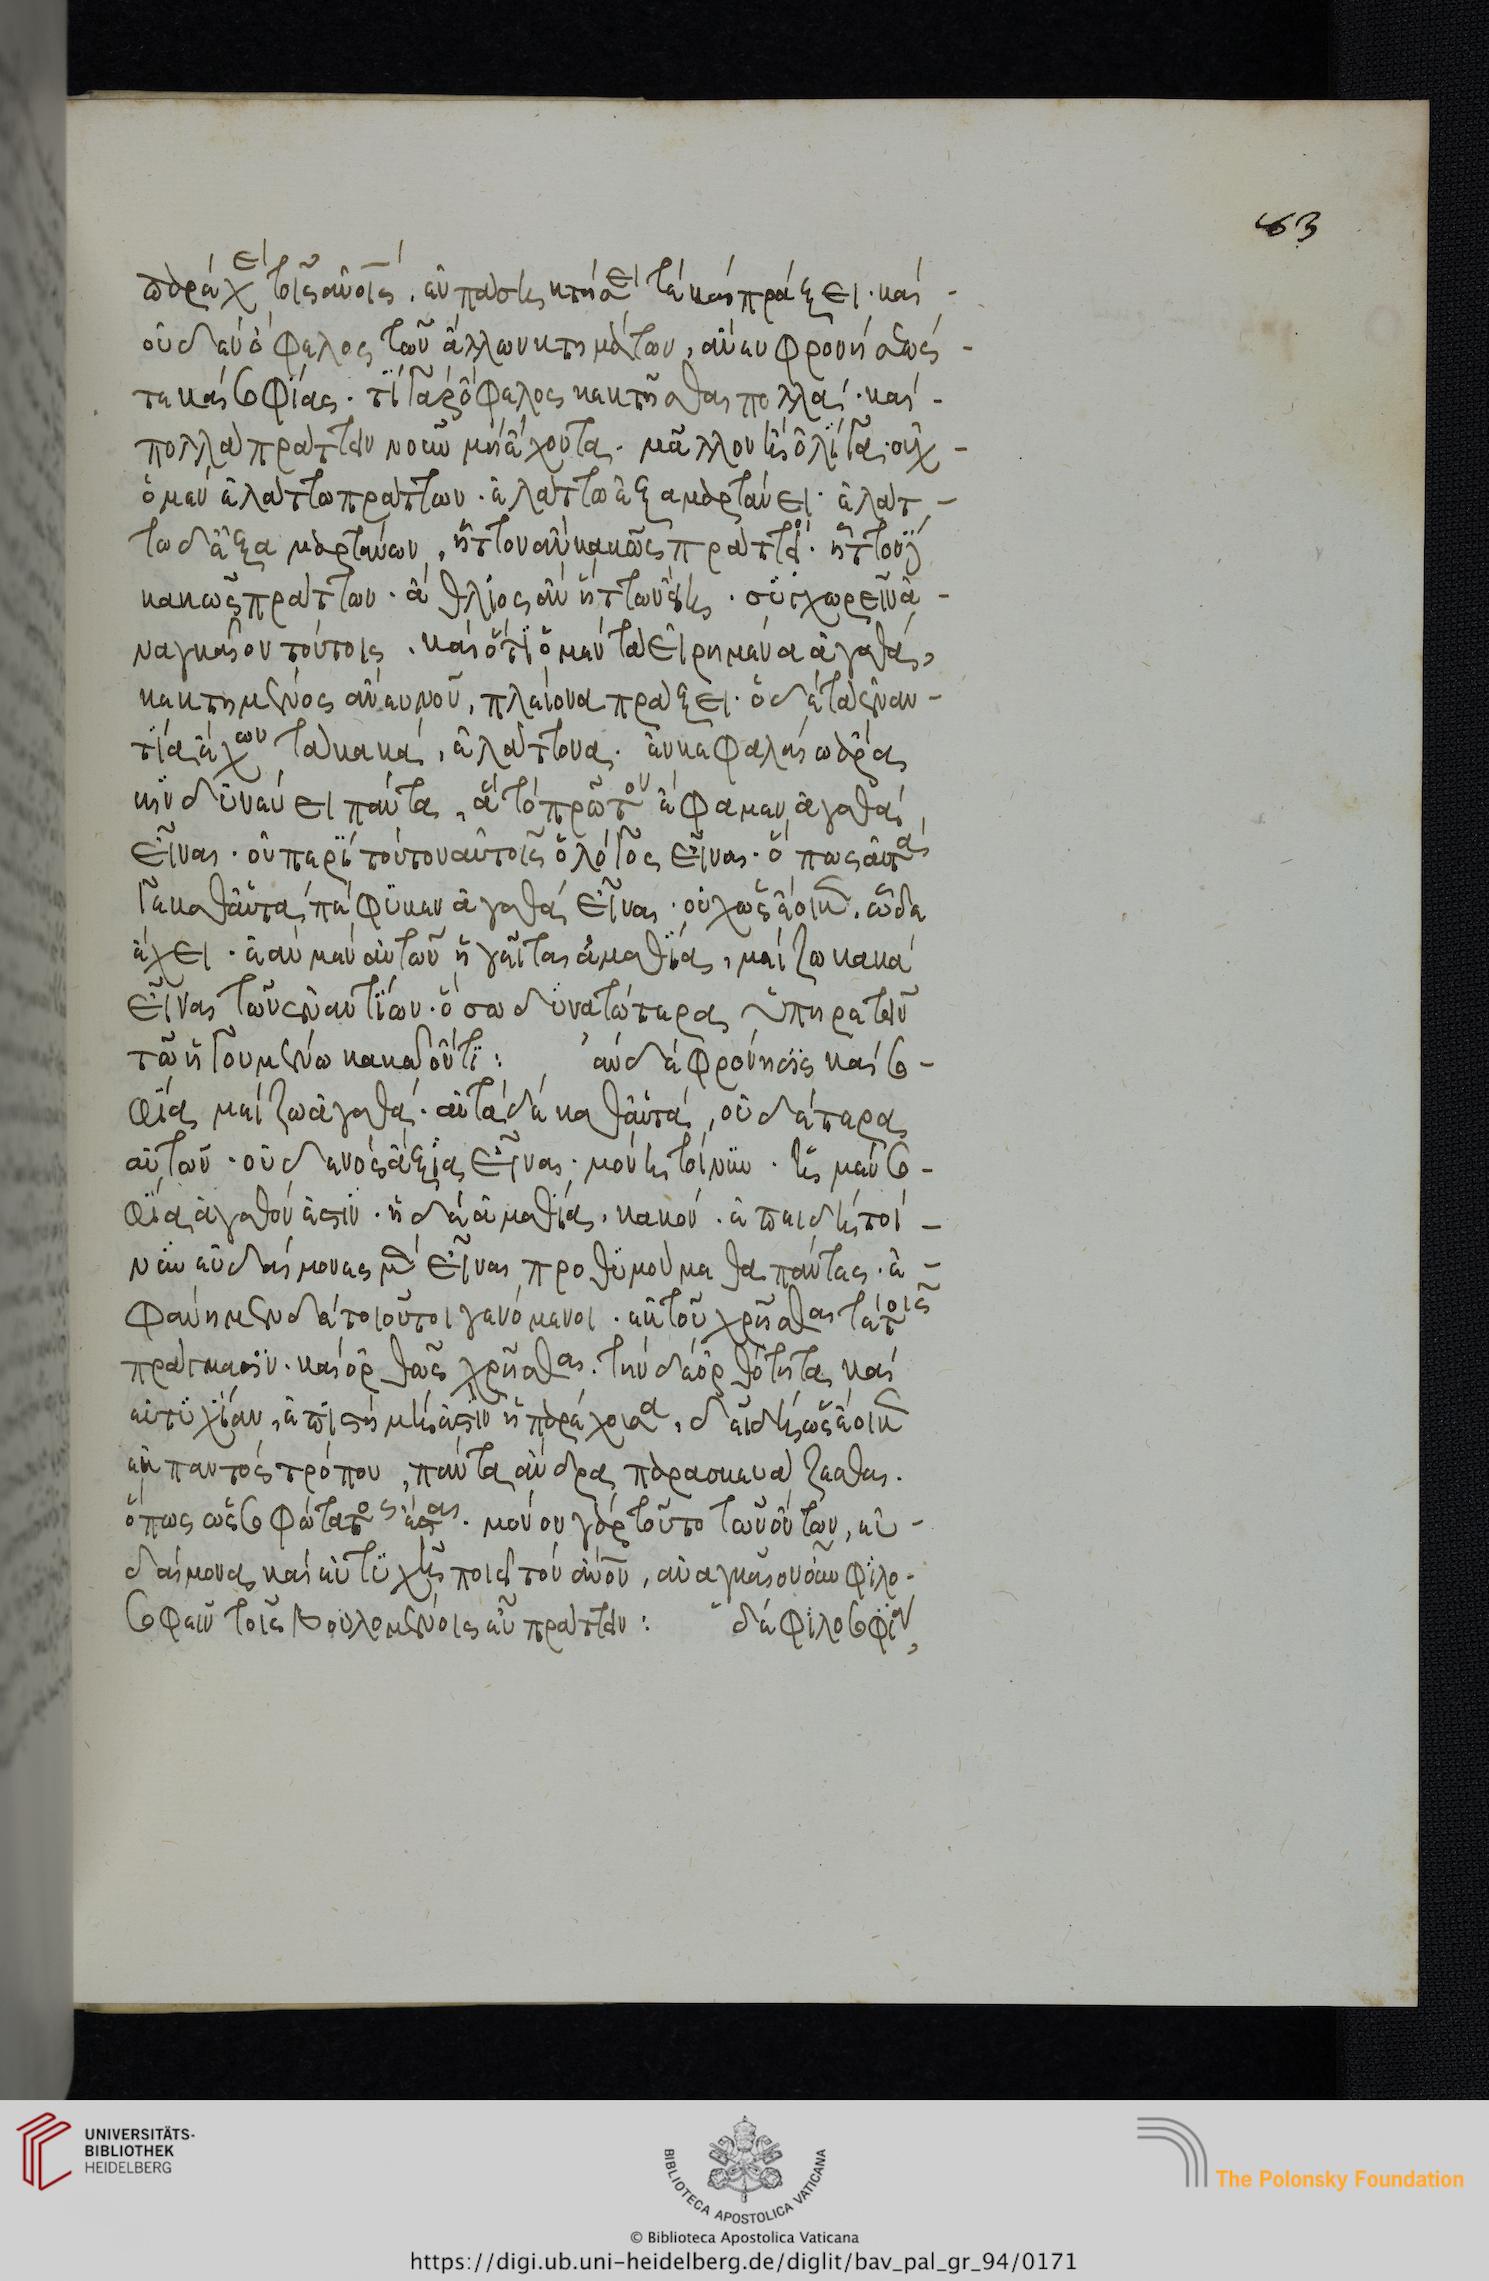 63
παρέχει τοῖς ἀνοις. ἐν πάση κτήσει τὲ καὶ πράξει. καὶ -
οὐδὲν ὄφελος τῶν ἄλλων κτημάτων, ἄνευ φρονήσεως -
τε καὶ σοφίας. τί γὰρ ὄφελος κεκτῆσθαι πολλά. καὶ -
πολλὰ πράττειν νοῦν μὴ ἔχοντα. μᾶλλον ἢ ὀλίγα. οὐχ -
ὁ μὲν ἐλάττω πράττων. ἐλάττω ἐξαμαρτάνει. ἐλάτ -
τω δ' ἐξαμαρτάνων, ἧττον ἂν κακῶς πράττοι. ἧττον δὲ
κακῶς πράττων. ἄθλιος ἂν ἥττων εἴη. συγχωρεῖν ἀ -
ναγκαῖον τούτοις. καὶ ὅτι ὁ μὲν τὰ εἰρημένα ἀγαθά,
κεκτημένος ἄνευ νοῦ, πλείονα πράξει. ὁ δὲ τὰ ἐναν -
τία ἔχων τὰ κακά, ἐλάττονα. ἐν κεφαλαίω ἄρα
κινδυνεύει πάντα, ἃ τὸ πρῶτον ἔφαμεν ἀγαθὰ
εἶναι. οὐ περὶ τούτου αὐτοῖς ὁ λόγος εἶναι. ὅπως αὐτὰ
γε καθ' αὑτὰ πέφυκεν ἀγαθὰ εἶναι. οὐχ ὡς ἔοικεν. ὧδε
ἔχει. ἐὰν μὲν αὐτῶν ἡγεῖται ἀμαθία, μείζω κακὰ
εἶναι τῶν ἐναντίων. ὅσω δυνατώτερα ὑπηρετεῖν
τῶ ἡγουμένω κακῶ ὄντι: ἐὰν δὲ φρόνησις καὶ σο -
φία μείζω ἀγαθά. αὐτὰ δὲ καθ' αὑτά, οὐδέτερα
αὐτῶν. οὐδενὸς ἄξια εἶναι. μόνη τοίνυν. ἡ μὲν σο -
φία ἀγαθόν ἐστιν. ἡ δὲ ἀμαθία, κακόν. ἐπειδὴ τοί -
νυν εὐδαίμονες μὲν εἶναι προθυμούμεθα πάντες. ἐ -
φάνημεν δὲ τοιοῦτοι γενόμενοι. ἐκ τοῦ χρῆσθαι τὲ τοῖς
πράγμασιν. καὶ ὀρθῶς χρῆσθαι. τὴν δὲ ὀρθότητα καὶ
εὐτυχίαν, ἐπιστήμη ἐστὶν ἡ παρέχουσα, δεῖ δὴ ὡς ἔοικεν
ἐκ παντὸς τρόπου, πάντα ἄνδρα παρασκευάζεσθαι.
ὅπως ὡς σοφώτατος ἔσται. μόνον γὰρ τοῦτο τῶν ὄντων, εὐ -
δαίμονα καὶ εὐτυχῆ ποιεῖ τὸν ἄνον, ἀναγκαῖον οὖν φιλο -
σοφεῖν τοῖς βουλομένοις εὖ πράττειν: δὲ φιλοσοφίαν,
UNIVERSITÄTS-
BIBLIOTHEK
HEIDELBERG
BIBLIOTECA APOSTOLICA VATICANA
The Polonsky Foundation
© Biblioteca Apostolica Vaticana
https://digi.ub.uni-heidelberg.de/diglit/bav_pal_gr_94/0171